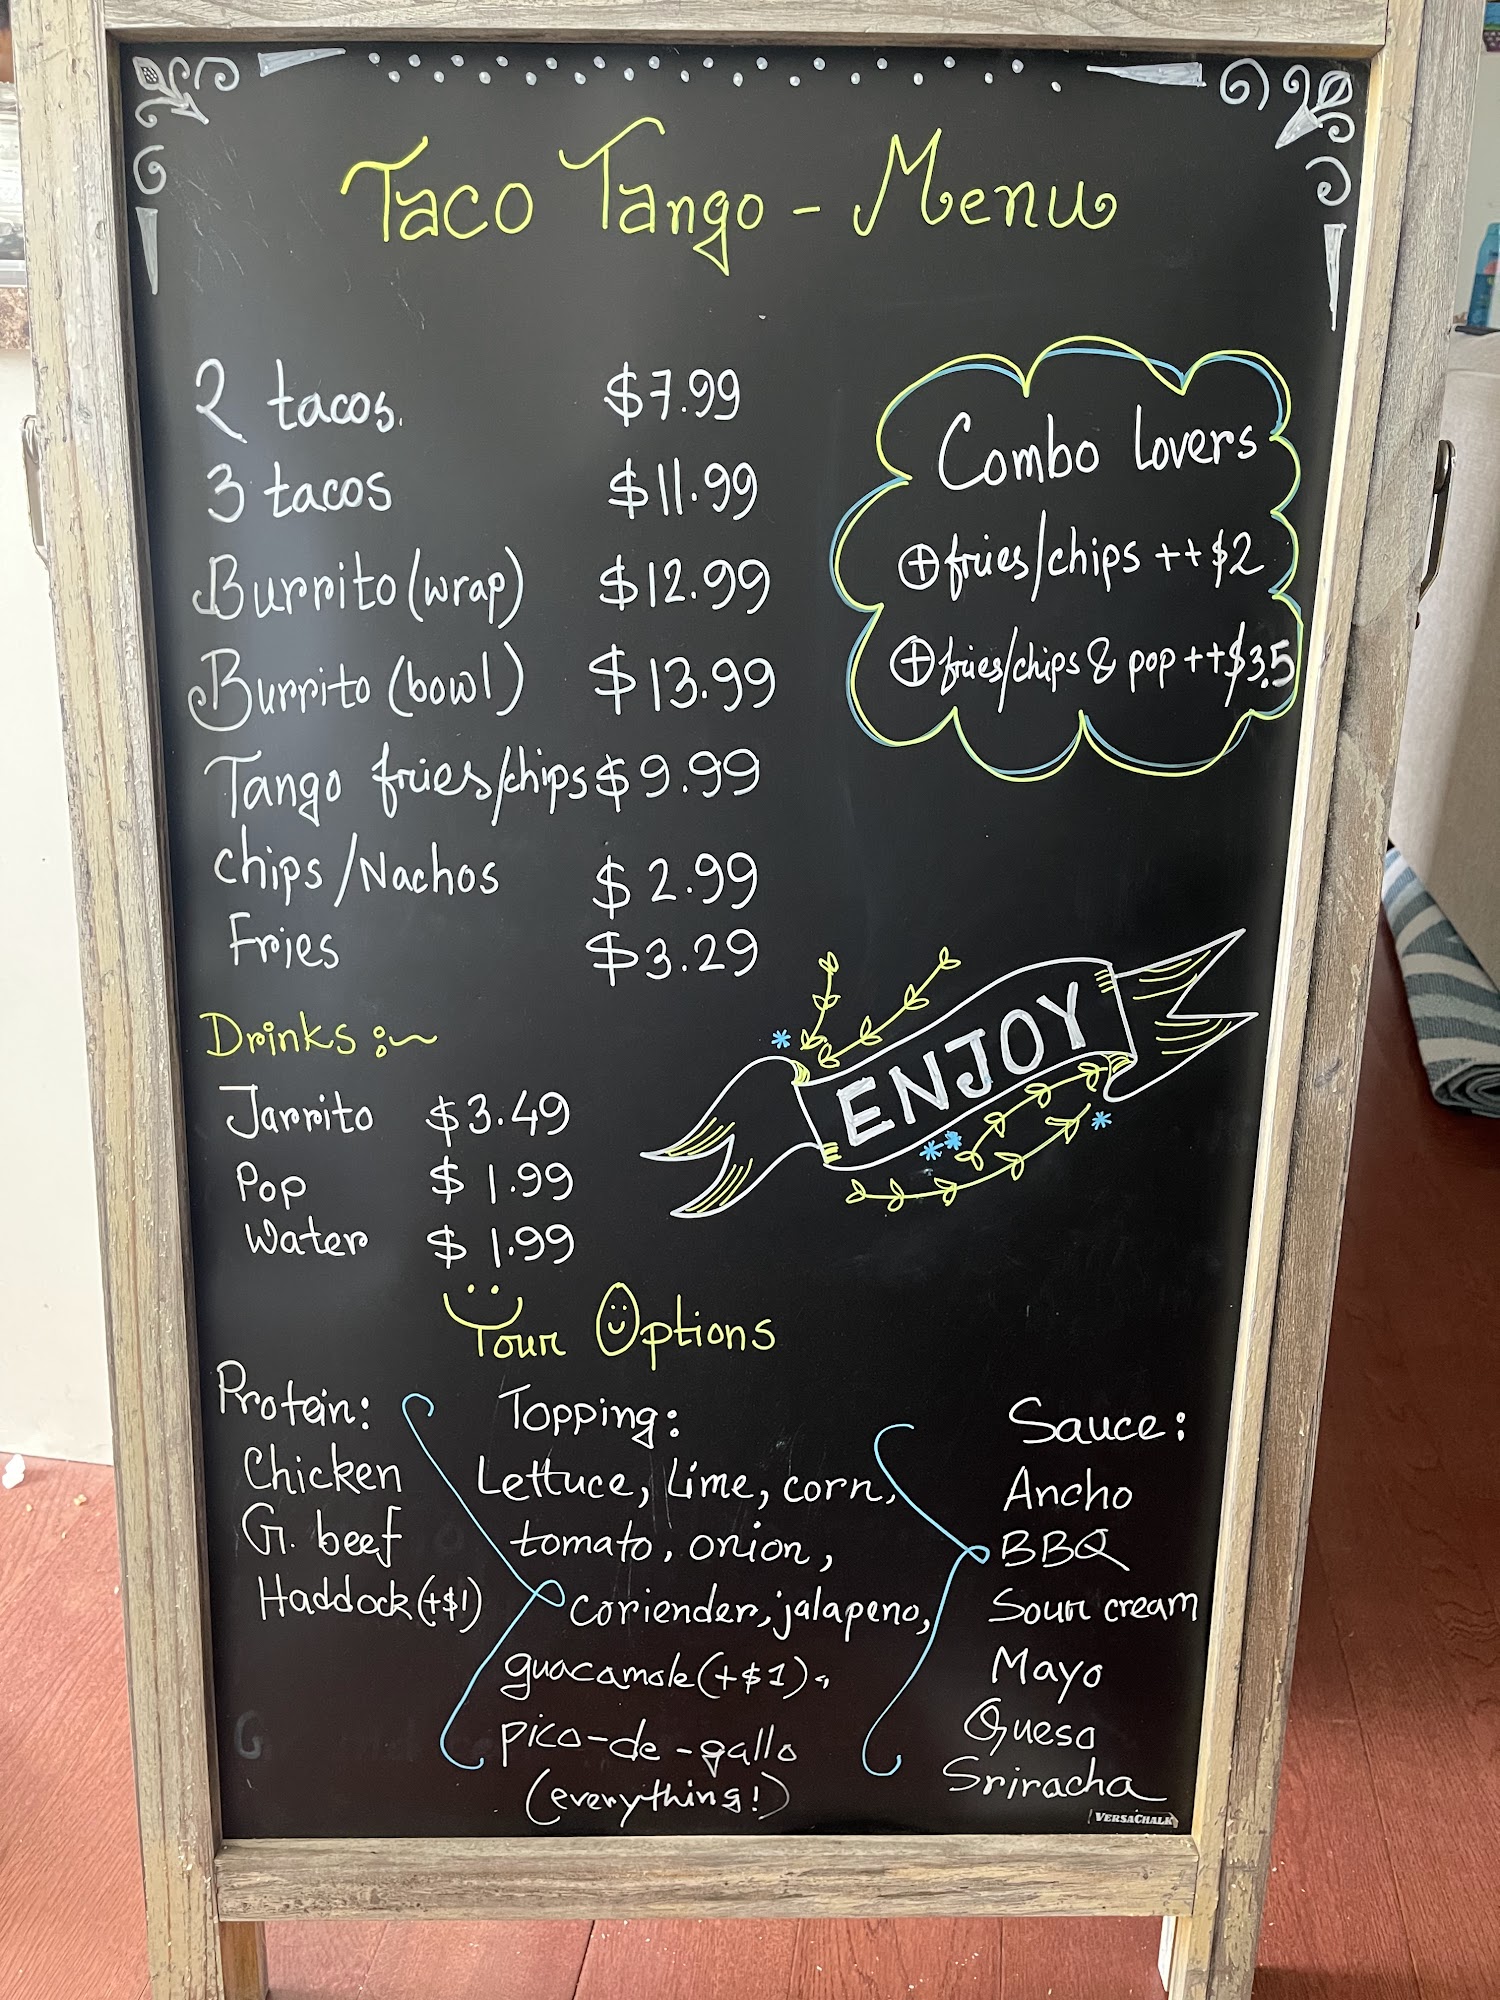 Taco Tango - Menu
2 tacos. $7.99
3 tacos $11.99
Burrito (wrap) $12.99
Burrito (bowl) $13.99
Tango fries/chips $9.99
chips/Nachos $2.99
Fries $3.29
Combo lovers
+ fries/chips ++$2
+ fries/chips & pop ++$3.5
ENJOY
Drinks :~
Jarrito $3.49
Pop $1.99
Water $1.99
Your Options
Protein:
Chicken
G. beef
Haddock (+$1)
Topping:
Lettuce, Lime, corn,
tomato, onion,
coriender, jalapeno,
guacamole (+$1),
pico-de-gallo
(everything!)
Sauce:
Ancho
BBQ
Sour cream
Mayo
Queso
Sriracha
VERSACHALK